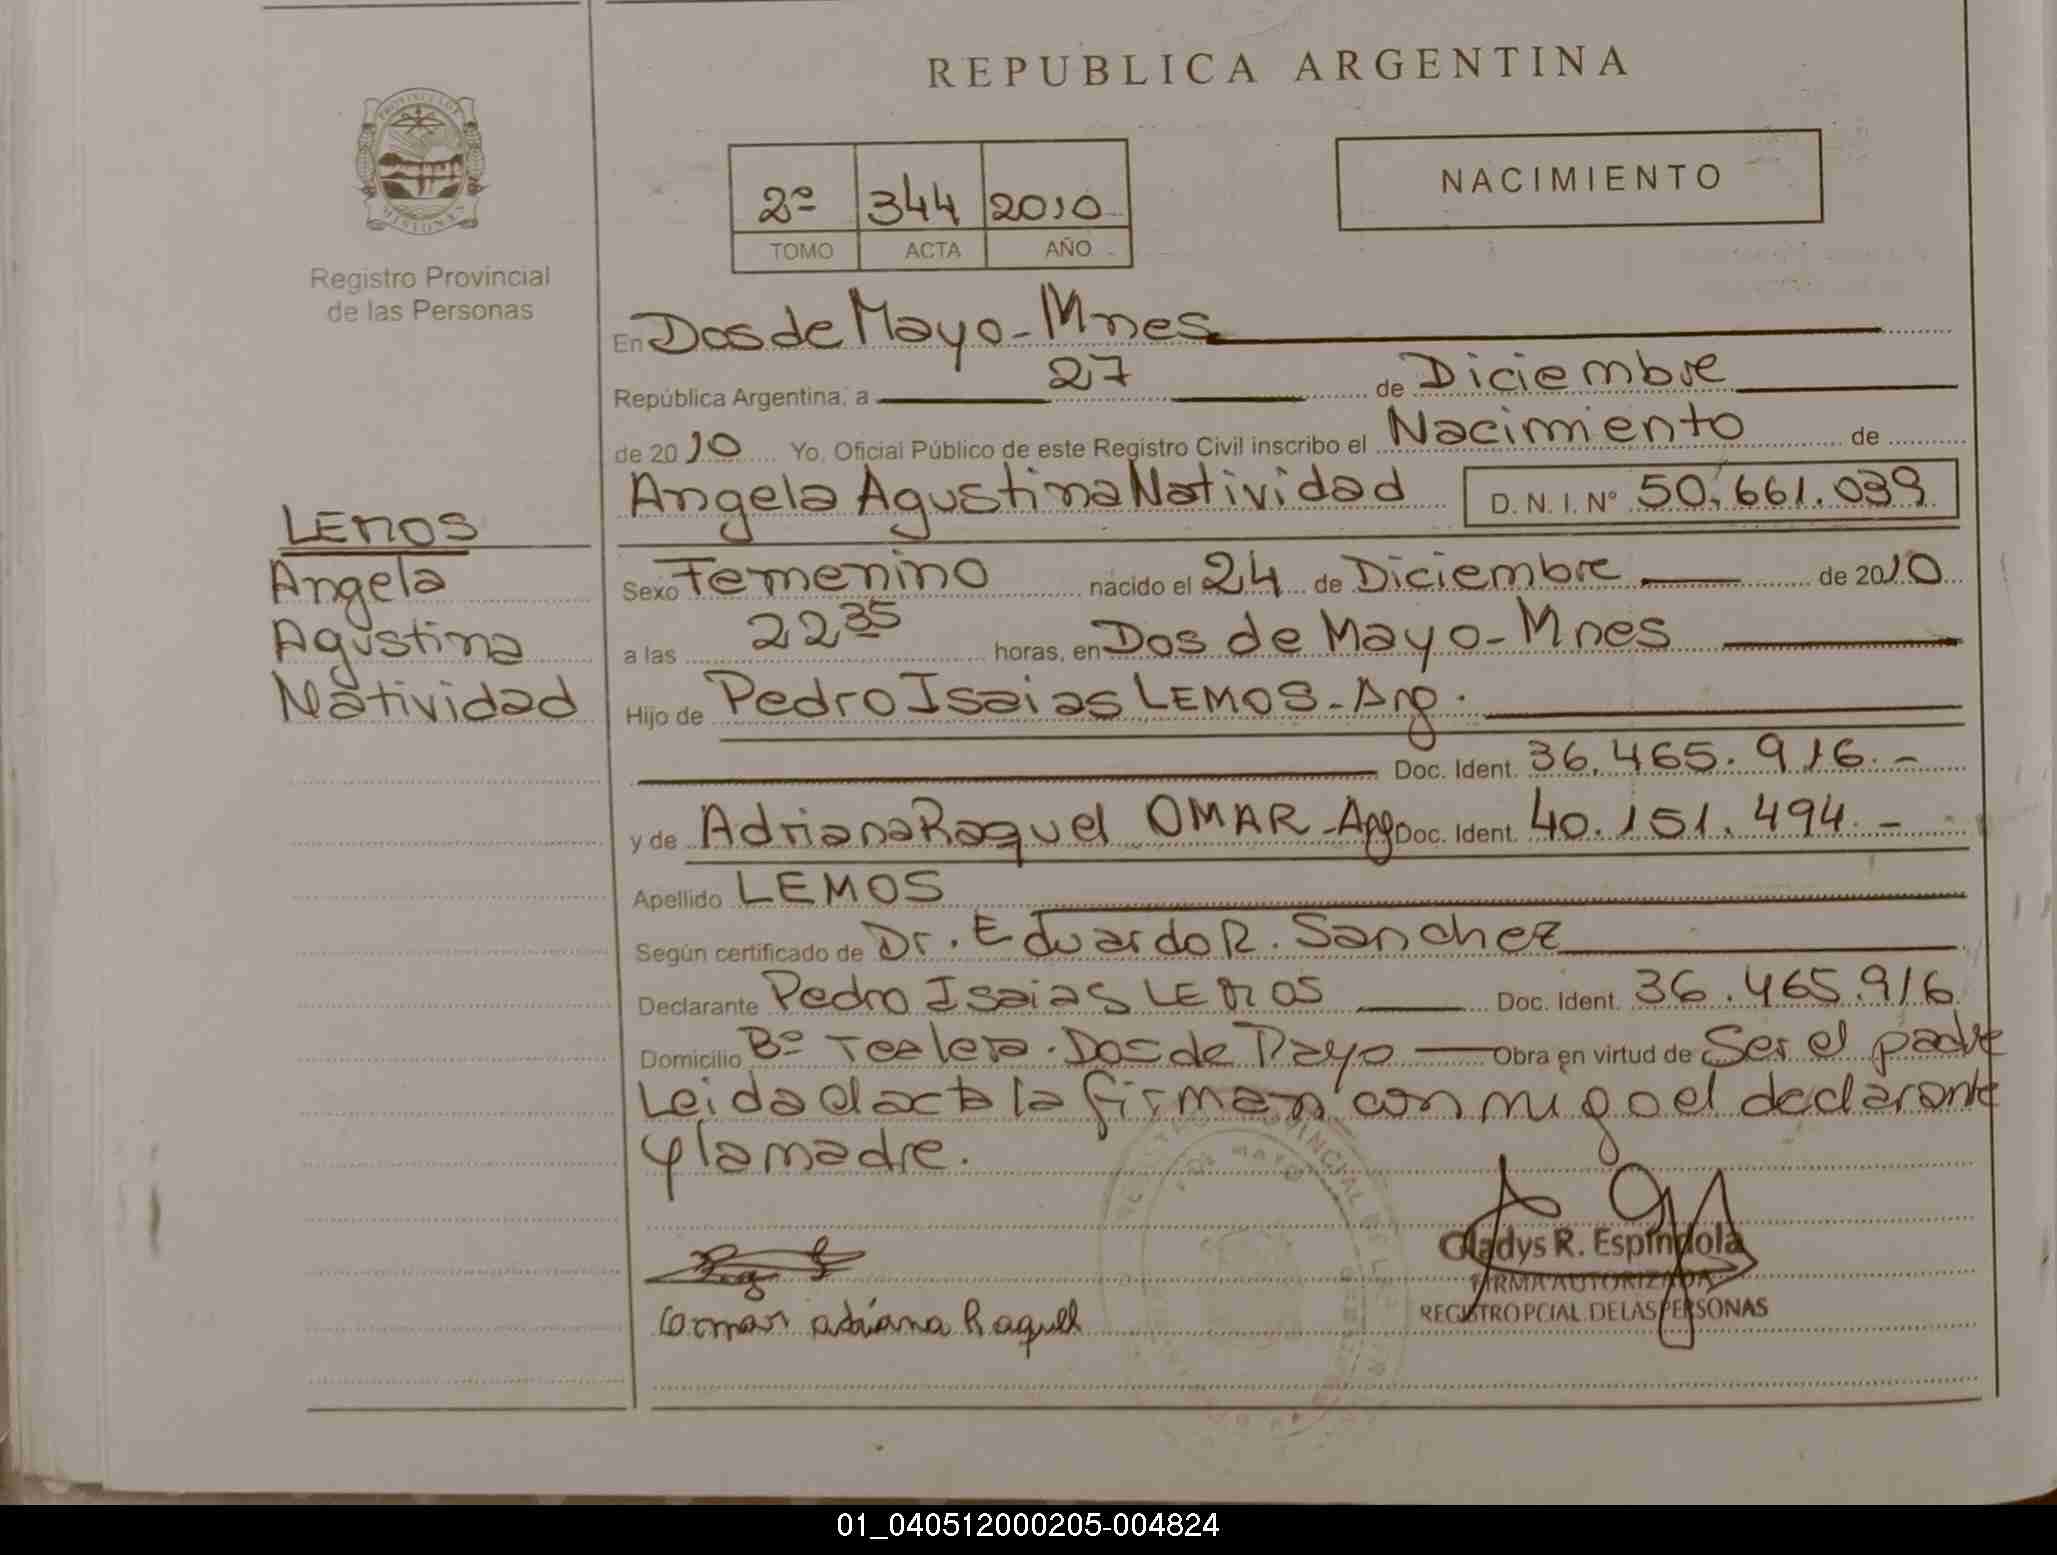 REPUBLICA ARGENTINA
PROVINCIA DE
MISIONES
Registro Provincial
de las Personas
2º 344 2010
TOMO ACTA AÑO
NACIMIENTO
En Dos de Mayo - Mnes
República Argentina, a 27 de Diciembre
de 2010 Yo, Oficial Público de este Registro Civil inscribo el Nacimiento de
Angela Agustina Natividad D. N. I. Nº 50.661.039
LEMOS
Angela
Agustina
Natividad
Sexo Femenino nacido el 24 de Diciembre de 2010
a las 22 35 horas, en Dos de Mayo - Mnes
Hijo de Pedro Isaias LEMOS - Arg.
Doc. Ident. 36.465.916.-
y de Adriana Raquel OMAR - Arg Doc. Ident. 40.151.494.-
Apellido LEMOS
Según certificado de Dr. Eduardo R. Sanchez
Declarante Pedro Isaias LEMOS Doc. Ident. 36.465.916
Domicilio Bº Tealera. Dos de Mayo Obra en virtud de Ser el padre
Leida el acta la firman conmigo el declarante
y la madre.
Gladys R. Espindola
FIRMA AUTORIZADA
REGISTRO PCIAL. DE LAS PERSONAS
omar adriana Raquel
01_040512000205-004824